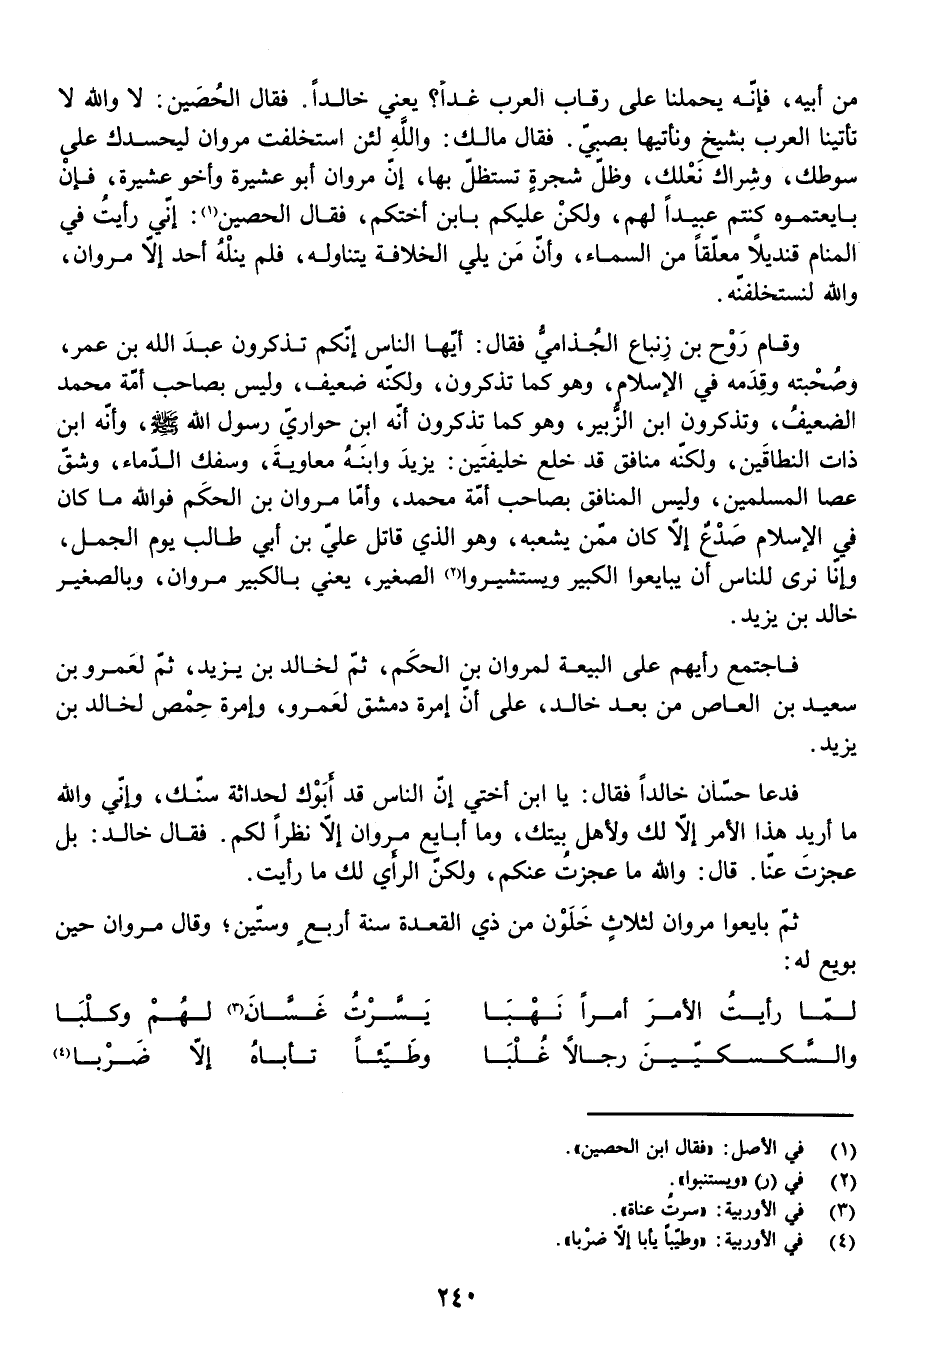 من أبيه، فإنّه يحملنا على رقاب العرب غداً؟ يعني خالداً. فقال الحُصَين: لا والله لا
تأتينا العرب بشيخ ونأتيها بصبيّ. فقال مالك: واللَّهِ لئن استخلفت مروان ليحسدك على
سوطك، وشِراك نَعْلك، وظلّ شجرةٍ تستظلّ بها، إنّ مروان أبو عشيرة وأخو عشيرة، فإنْ
بايعتموه كنتم عبيداً لهم، ولكنْ عليكم بابن أختكم، فقال الحصين(١): إنّي رأيتُ في
المنام قنديلاً معلّقاً من السماء، وأنّ مَن يلي الخلافة يتناوله، فلم ينلْهُ أحد إلّا مروان،
والله لنستخلفنّه.
وقام رَوْح بن زِنباع الجُذاميُّ فقال: أيّها الناس إنّكم تذكرون عبدَ الله بن عمر،
وصُحْبته وقِدَمه في الإسلام، وهو كما تذكرون، ولكنّه ضعيف، وليس بصاحب أمّة محمد
الضعيفُ، وتذكرون ابن الزُّبير، وهو كما تذكرون أنّه ابن حواريّ رسول الله ﷺ، وأنّه ابن
ذات النطاقَين، ولكنّه منافق قد خلع خليفتَين: يزيدَ وابنَهُ معاويةَ، وسفك الدّماء، وشقّ
عصا المسلمين، وليس المنافق بصاحب أمّة محمد، وأمّا مروان بن الحكَم فوالله ما كان
في الإسلام صَدْعٌ إلّا كان ممّن يشعبه، وهو الذي قاتل عليّ بن أبي طالب يوم الجمل،
وإنّا نرى للناس أن يبايعوا الكبير ويستشيروا(٢) الصغير، يعني بالكبير مروان، وبالصغير
خالد بن يزيد.
فاجتمع رأيهم على البيعة لمروان بن الحكَم، ثمّ لخالد بن يزيد، ثمّ لعَمرو بن
سعيد بن العاص من بعد خالد، على أنّ إمرة دمشق لعَمرو، وإمرة حِمْص لخالد بن
يزيد.
فدعا حسّان خالداً فقال: يا ابن أختي إنّ الناس قد أَبَوْك لحداثة سنّك، وإنّي والله
ما أريد هذا الأمر إلّا لك ولأهل بيتك، وما أبايع مروان إلّا نظراً لكم. فقال خالد: بل
عجزتَ عنّا. قال: والله ما عجزتُ عنكم، ولكنّ الرأي لك ما رأيت.
ثمّ بايعوا مروان لثلاثٍ خَلَوْن من ذي القعدة سنة أربعٍ وستّين؛ وقال مروان حين
بويع له:
لمّا رأيتُ الأمرَ أمراً نَهْبَا يَسَّرْتُ غَسَّانَ(٣) لهُمْ وكلْبَا
والسَّكسكيّينَ رجالاً غُلْبَا وطَيّئاً تأباهُ إلّا ضَرْبا(٤)
(١) في الأصل: «فقال ابن الحصين».
(٢) في (ر) «ويستنبوا».
(٣) في الأوربية: «سرتُ عناة».
(٤) في الأوربية: «وطيّباً يأبا إلّا ضرْبا».
٢٤٠